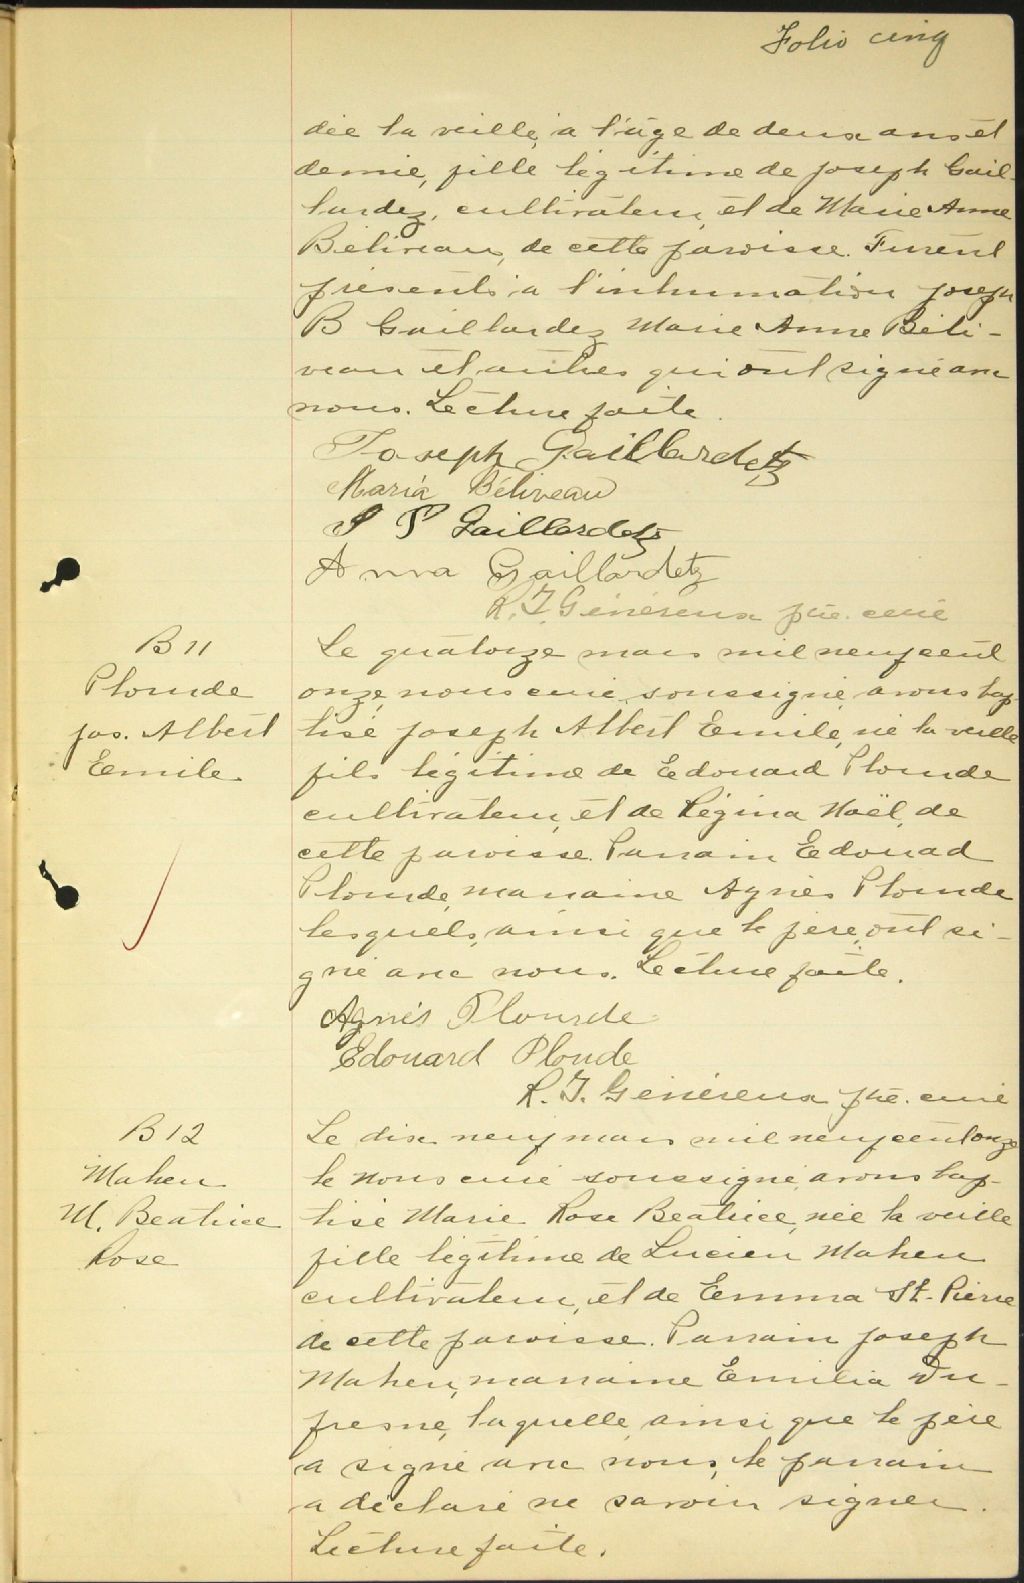 Folio cinq
dée la veille, a l'âge de deux ans et
demie, fille légitime de Joseph Gail-
lardez, cultivateur, et de Marie Anne
Béliveau, de cette paroisse. Furent
présents, a l'inhumation Joseph
B Gaillardez Marie Anne Béli-
veau et autres qui ont signé avec
nous. Lecture faite.
Joseph Gaillardetz
Maria Béliveau
Gaillardetz
Anna Gaillardetz
R. J. Généreux ptre. curé
B 11
Plourde
Jos. Albert
Emile
Le quatorze mars mil neuf cent
onze, nous curé soussigné avons bap-
tisé Joseph Albert Emile, né la veille
fils légitime de Edouard Plourde
cultivateur, et de Régina Noël, de
cette paroisse. Parrain Edouad
Plourde, marraine Agnès Plourde
lesquels, ainsi que le père, ont si-
gné avec nous. Lecture faite.
Agnès Plourde
Edouard Ploude
R. J. Généreux ptre. curé
B 12
Maheu
M. Beatrice
Rose
Le dix neuf mars mil neuf cent onze
le nous curé soussigné, avons bap-
tisé Marie Rose Beatrice, née la veille
fille légitime de Lucien Maheu
cultivateur, et de Emma St. Pierre
de cette paroisse. Parrain Joseph
Maheu, marraine Emilia Du-
fresne, laquelle, ainsi que le père
a signé avec nous, le parrain
a déclaré ne savoir signer.
Lecture faite.